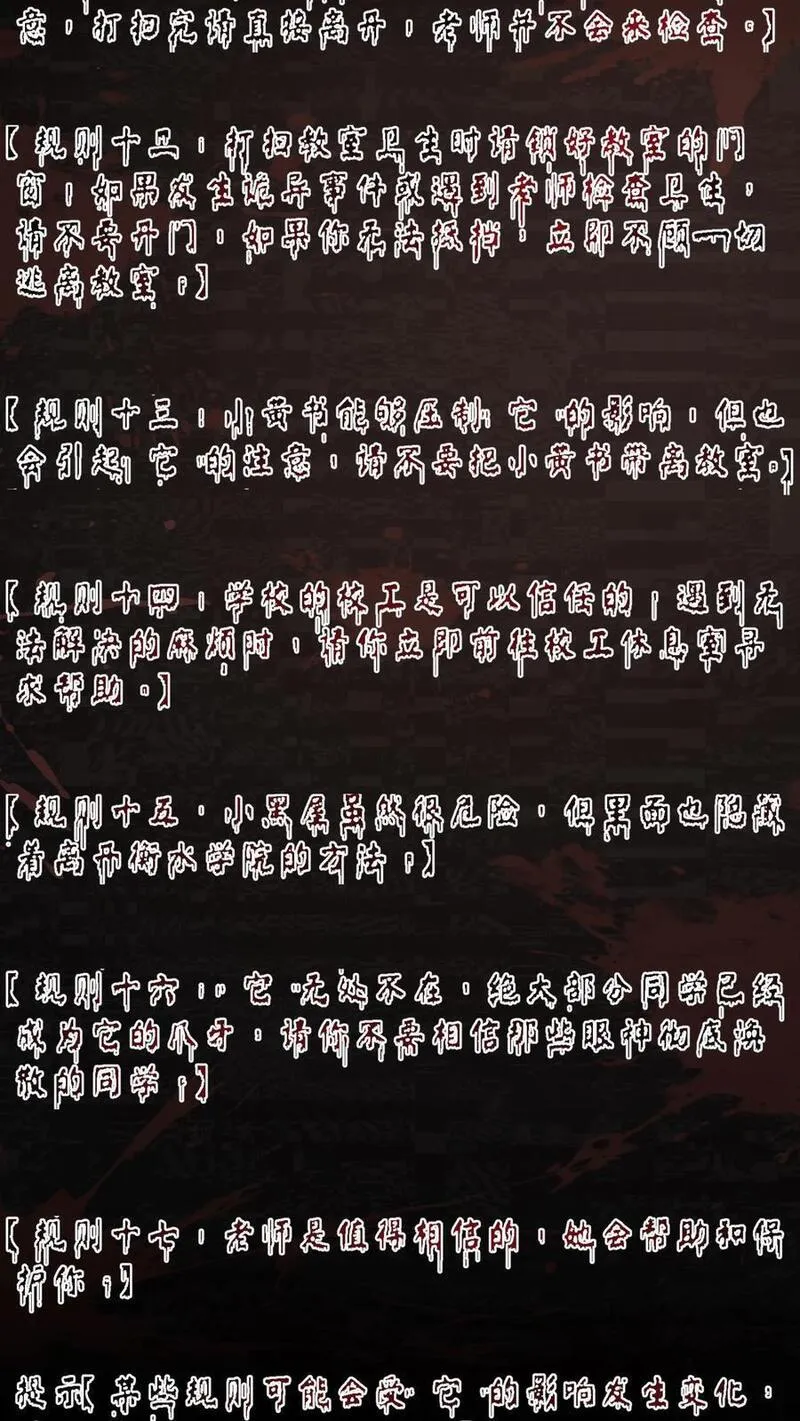 意，打扫完请直接离开，老师并不会来检查。】
【规则十二：打扫教室卫生时请锁好教室的门
窗，如果发生诡异事件或遇到老师检查卫生，
请不要开门，如果你无法抵挡，立即不顾一切
逃离教室。】
【规则十三：小黄书能够压制“它”的影响，但也
会引起“它”的注意，请不要把小黄书带离教室。】
【规则十四：学校的校工是可以信任的，遇到无
法解决的麻烦时，请你立即前往校工休息室寻
求帮助。】
【规则十五，小黑屋虽然很危险，但里面也隐藏
着离开衡水学院的方法。】
【规则十六：“它”无处不在，绝大部分同学已经
成为它的爪牙，请你不要相信那些眼神彻底涣
散的同学。】
【规则十七：老师是值得相信的，她会帮助和保
护你。】
提示【某些规则可能会受“它”的影响发生变化，